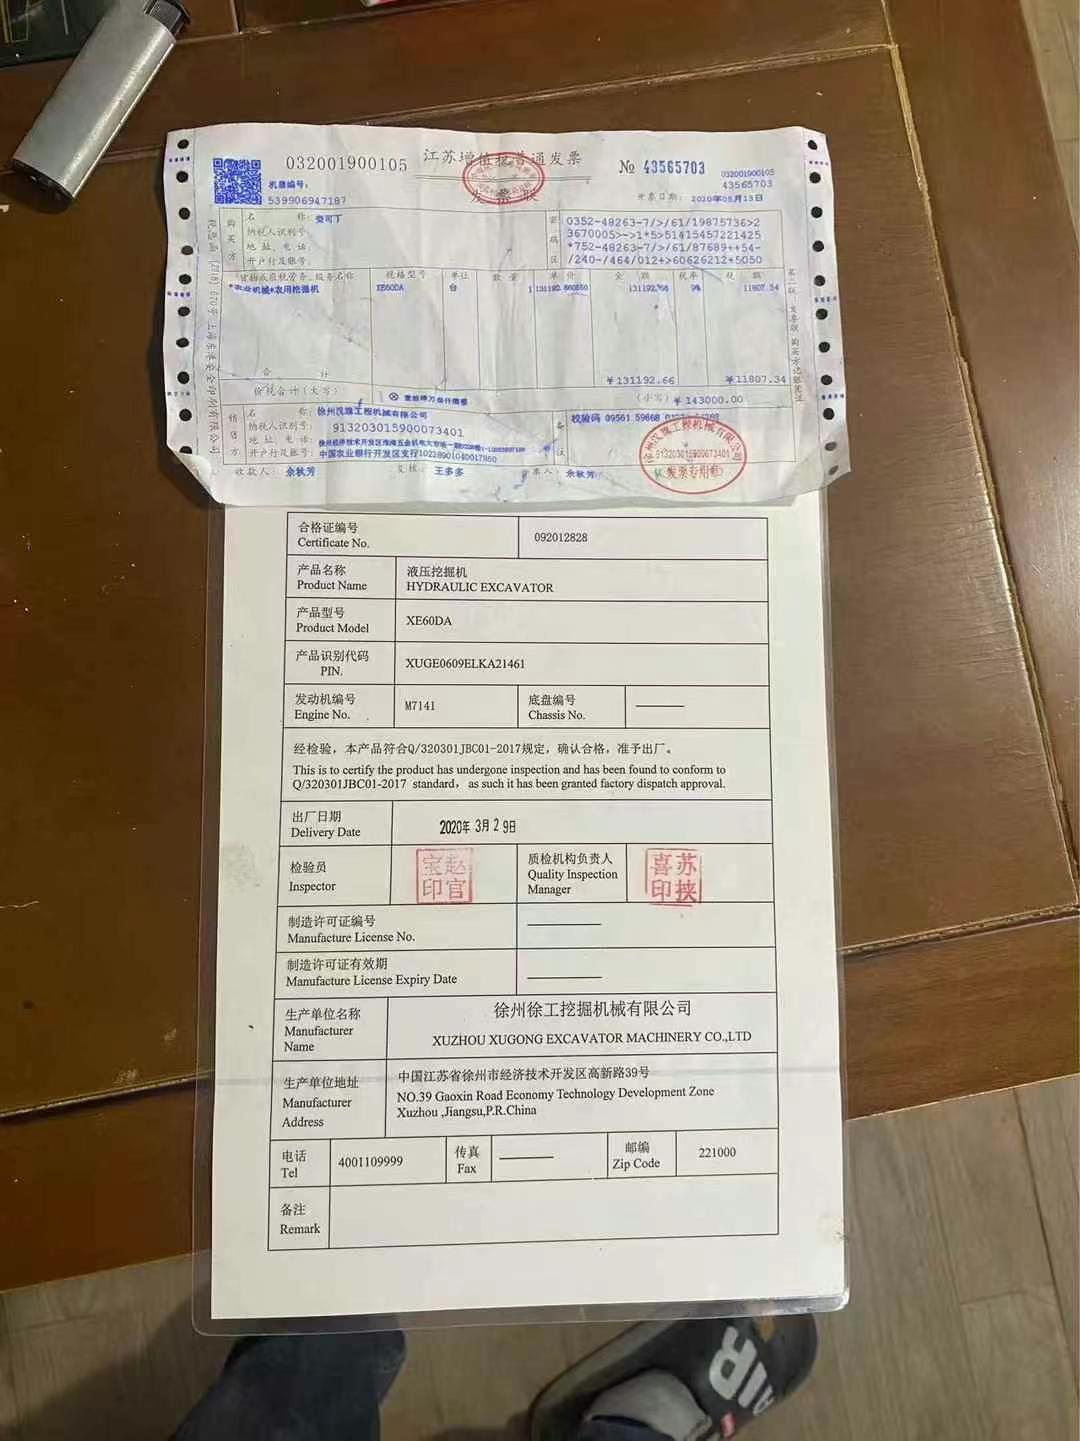 032001900105
江苏增值税普通发票
№ 43565703
032001900105
43565703
机器编号:
539906947187
发票联
开票日期: 2020年05月13日
购买方
名 称:
纳税人识别号:
地 址、电 话:
开户行及账号:
密码区
0352-48263-7/>/61/19875736>2
3670005>->1*5>51415457221425
*752-48263-7/>/61/87689++54-
/240-/464/012+>60626212+5050
货物或应税劳务、服务名称 规格型号 单位 数 量 单 价 金 额 税率 税 额
*农业机械*农用挖掘机 XE60DA 台 1 131192.66 9% 11807.34
合 计 ¥131192.66 ¥11807.34
价税合计(大写) (小写) ¥143000.00
销售方
名 称: 工程机械有限公司
纳税人识别号: 913203015900073401
地 址、电 话:
开户行及账号: 中国农业银行开发区支行
备注
校验码 09561 59668
收款人: 余秋芳 复核: 王多多 开票人: 余秋芳
913203015900073401
发票专用章
第二联:发票联 购买方记账凭证
合格证编号
Certificate No.
092012828
产品名称
Product Name
液压挖掘机
HYDRAULIC EXCAVATOR
产品型号
Product Model
XE60DA
产品识别代码
PIN.
XUGE0609ELKA21461
发动机编号
Engine No.
M7141
底盘编号
Chassis No.
经检验，本产品符合Q/320301JBC01-2017规定，确认合格，准予出厂。
This is to certify the product has undergone inspection and has been found to conform to
Q/320301JBC01-2017 standard，as such it has been granted factory dispatch approval.
出厂日期
Delivery Date
2020年 3月 2 9日
检验员
Inspector
赵官宝印
质检机构负责人
Quality Inspection
Manager
苏挟喜印
制造许可证编号
Manufacture License No.
制造许可证有效期
Manufacture License Expiry Date
生产单位名称
Manufacturer
Name
徐州徐工挖掘机械有限公司
XUZHOU XUGONG EXCAVATOR MACHINERY CO.,LTD
生产单位地址
Manufacturer
Address
中国江苏省徐州市经济技术开发区高新路39号
NO.39 Gaoxin Road Economy Technology Development Zone
Xuzhou ,Jiangsu,P.R.China
电话
Tel
4001109999
传真
Fax
邮编
Zip Code
221000
备注
Remark
AIR